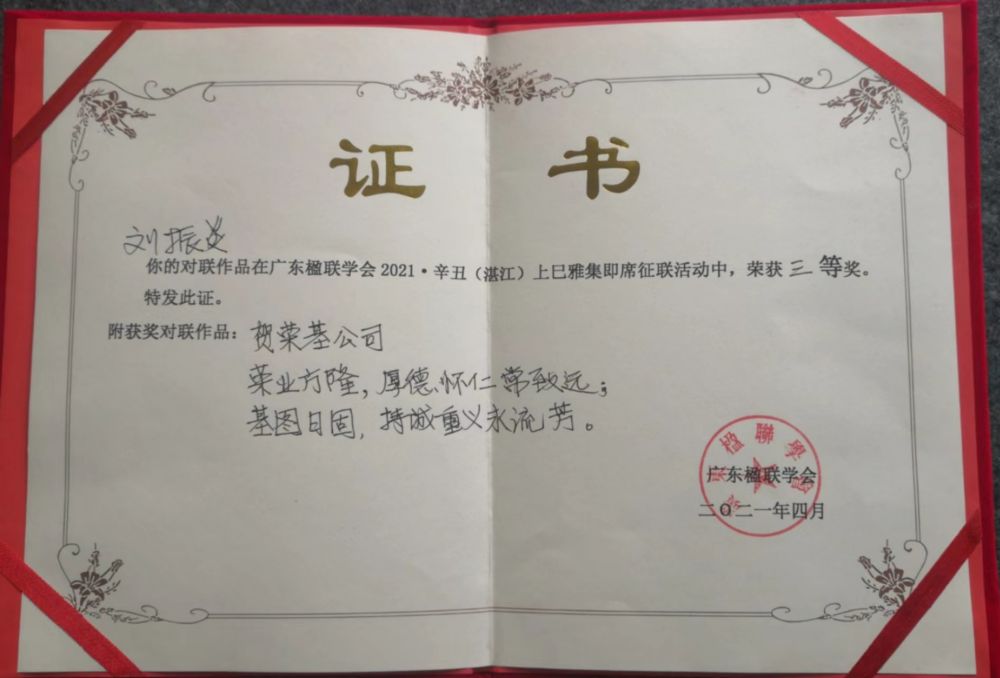 证书
刘振炎
你的对联作品在广东楹联学会2021·辛丑（湛江）上巳雅集即席征联活动中，荣获三等奖。
特发此证。
附获奖对联作品：贺荣基公司
荣业方隆，厚德怀仁常致远；
基图日固，持诚重义永流芳。
广东楹联学会
二〇二一年四月